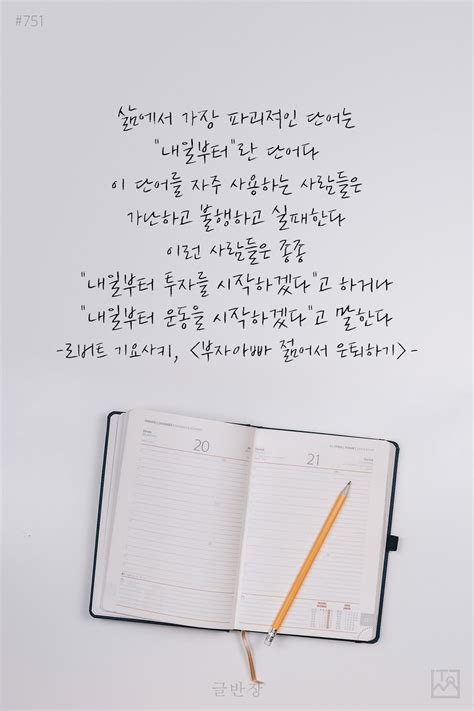 #751
삶에서 가장 파괴적인 단어는
"내일부터"란 단어다
이 단어를 자주 사용하는 사람들은
가난하고 불행하고 실패한다
이런 사람들은 종종
"내일부터 투자를 시작하겠다"고 하거나
"내일부터 운동을 시작하겠다"고 말한다
-로버트 기요사키, <부자아빠 젊어서 은퇴하기>-
20
21
글반장